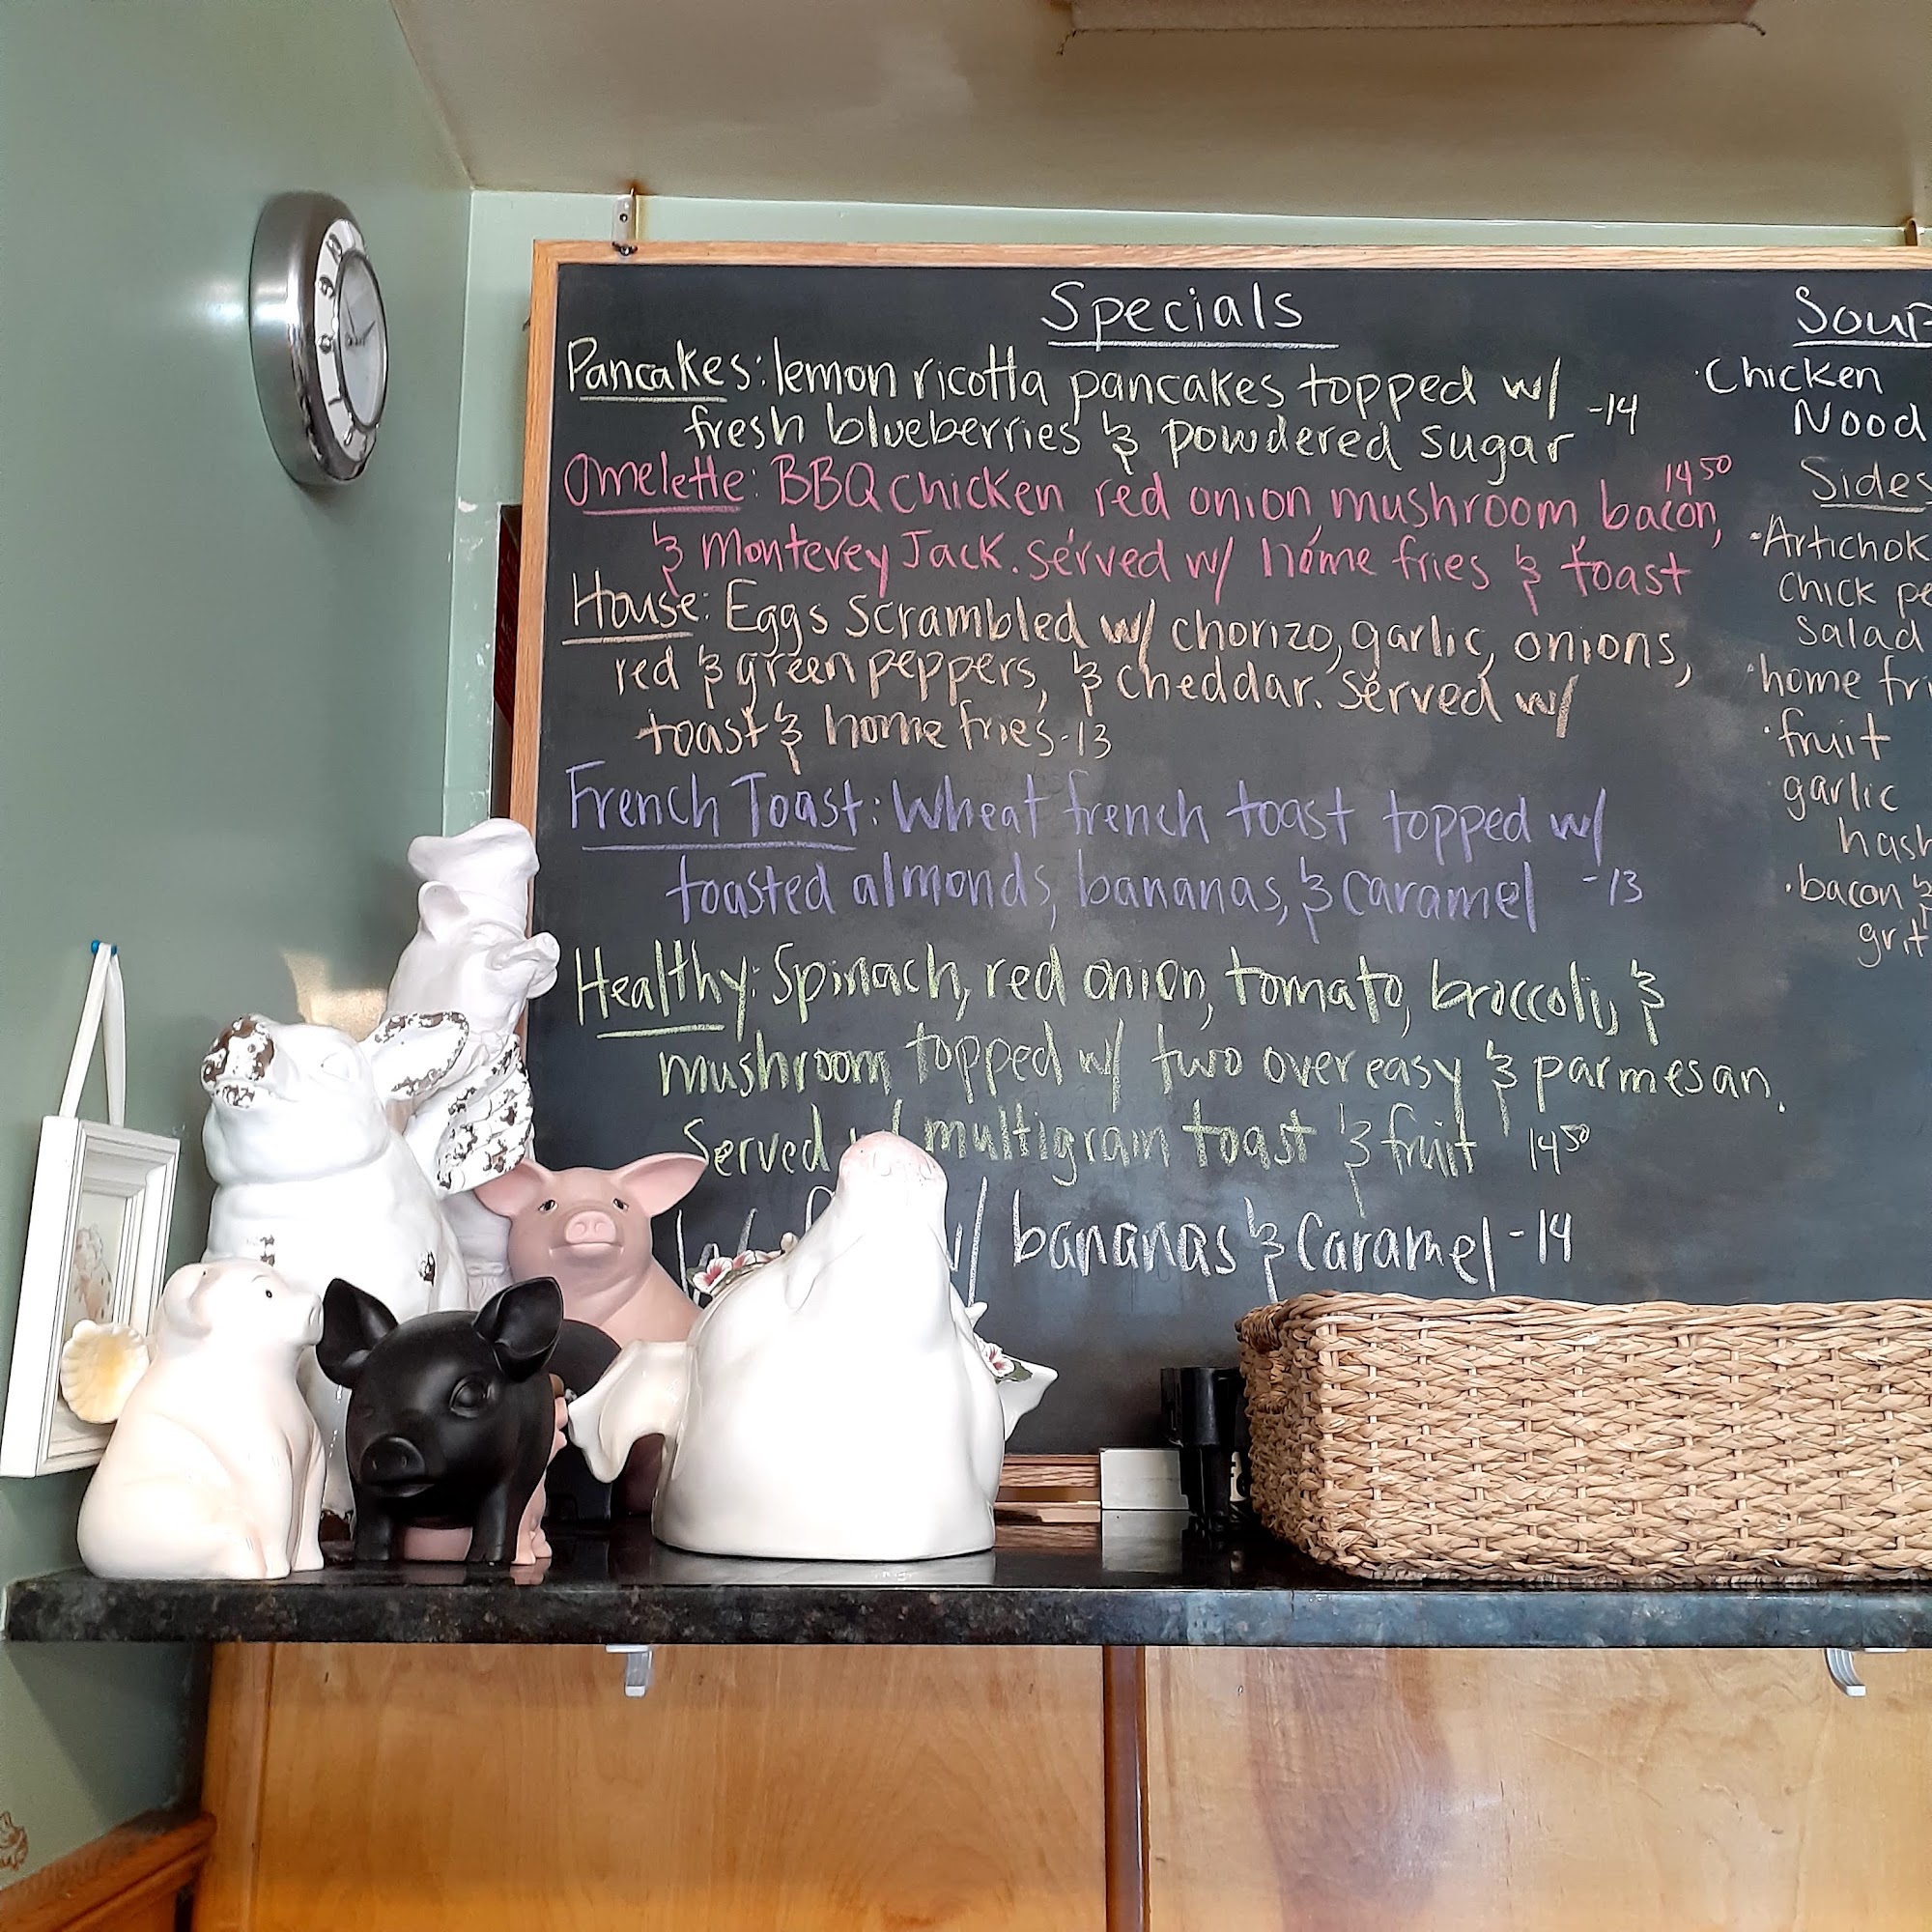 Specials
Pancakes: lemon ricotta pancakes topped w/
fresh blueberries & powdered sugar -14
Omelette: BBQ chicken red onion, mushroom, bacon, 14 50
& Monterey Jack. served w/ home fries & toast
House: Eggs scrambled w/ chorizo, garlic, onions,
red & green peppers, & cheddar. served w/
toast & home fries -13
French Toast: Wheat french toast topped w/
toasted almonds, bananas, & caramel -13
Healthy: Spinach, red onion, tomato, broccoli, &
mushroom topped w/ two over easy & parmesan.
Served w/ multigrain toast & fruit 14 50
w/ bananas & caramel -14
Soup
Chicken
Nood
Sides
·Artichok
chick pe
salad
·home fri
·fruit
·garlic
hash
·bacon &
grit